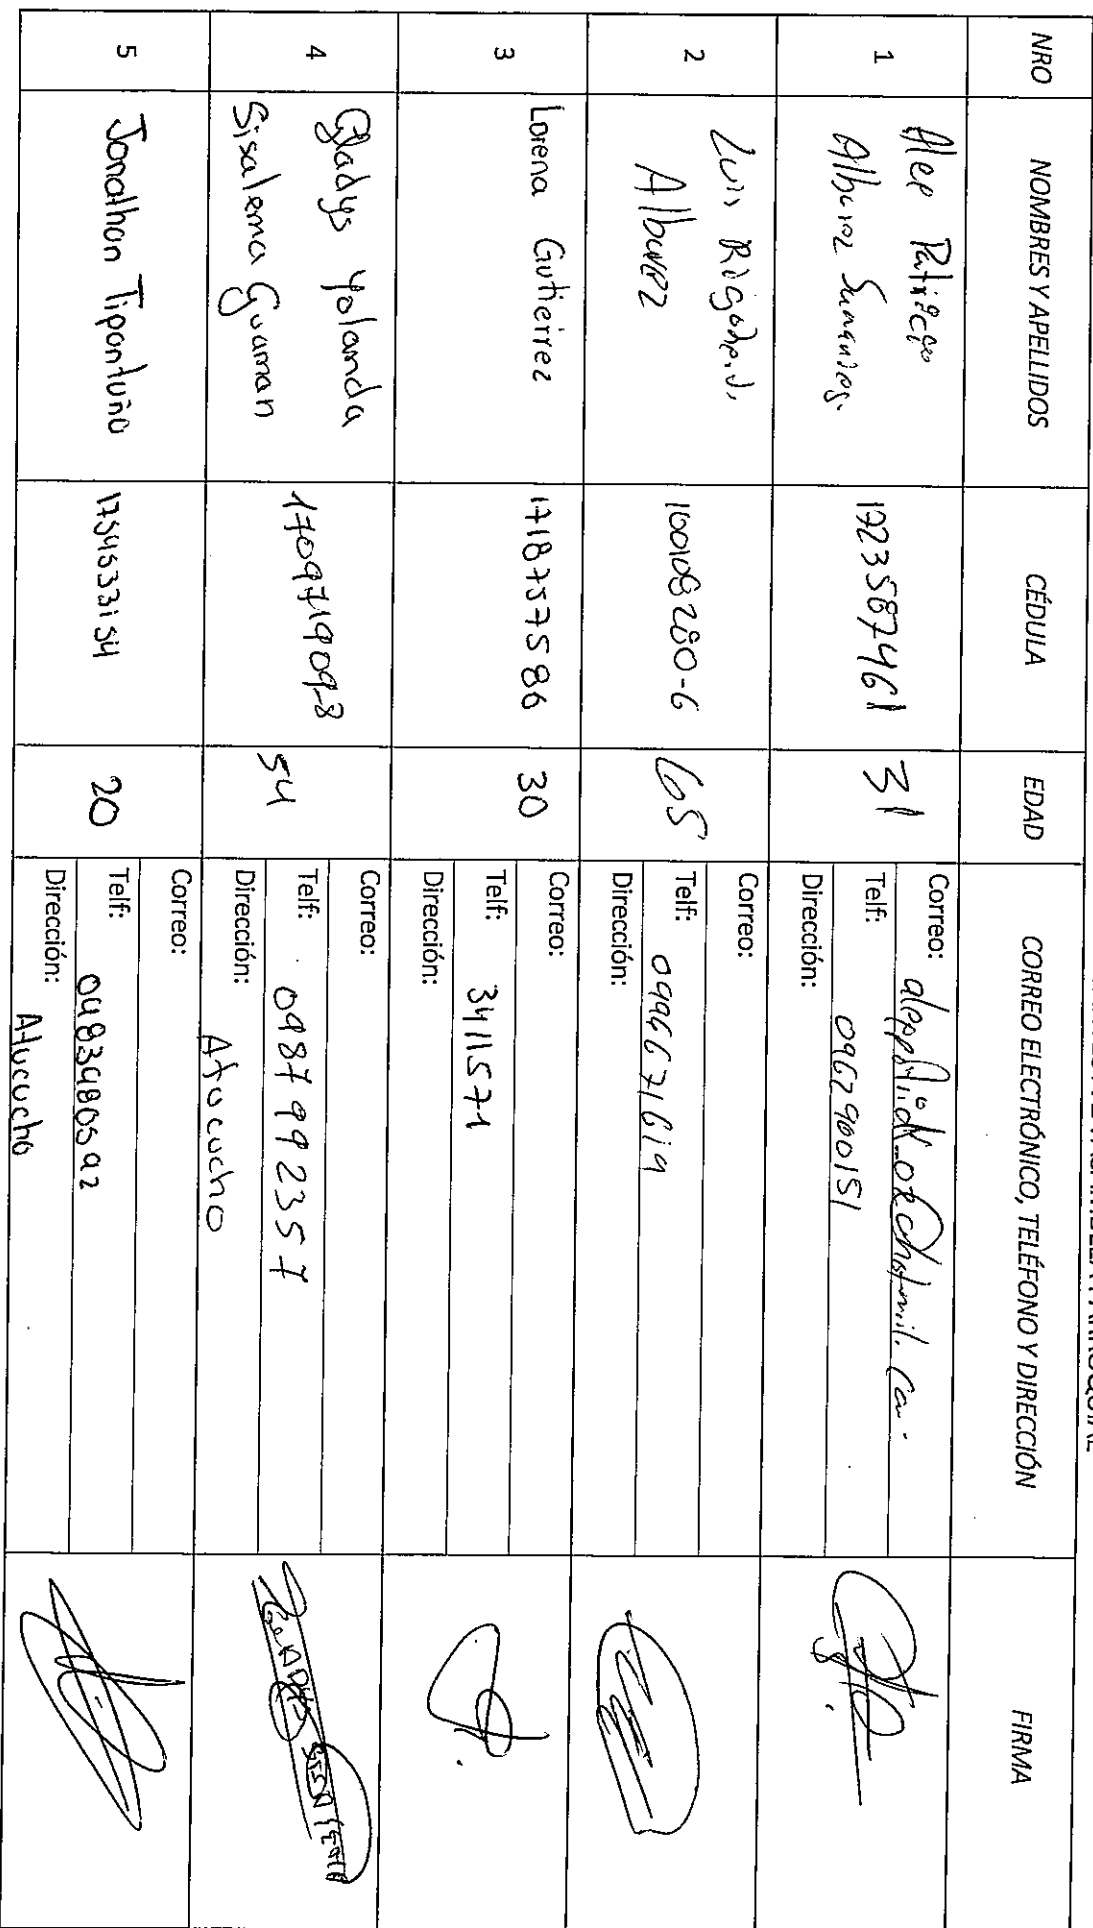 NRO NOMBRES Y APELLIDOS CÉDULA EDAD CORREO ELECTRÓNICO, TELÉFONO Y DIRECCIÓN FIRMA
1
Alep Patricio
Alburoz
1723587461
31
Correo:
Telf: 0962900151
Dirección:
2
Luis
Alburoz
100108280-6
65
Correo:
Telf: 0996671619
Dirección:
3
Lorena Gutierrez
1718757586
30
Correo:
Telf: 3411571
Dirección:
4
Gladys Yolanda
Sisalema Guaman
170971909-8
54
Correo:
Telf: 0987992357
Dirección: Atucucho
5
Jonathan Tipantuña
1754533154
20
Correo:
Telf: 0483480592
Dirección: Atucucho